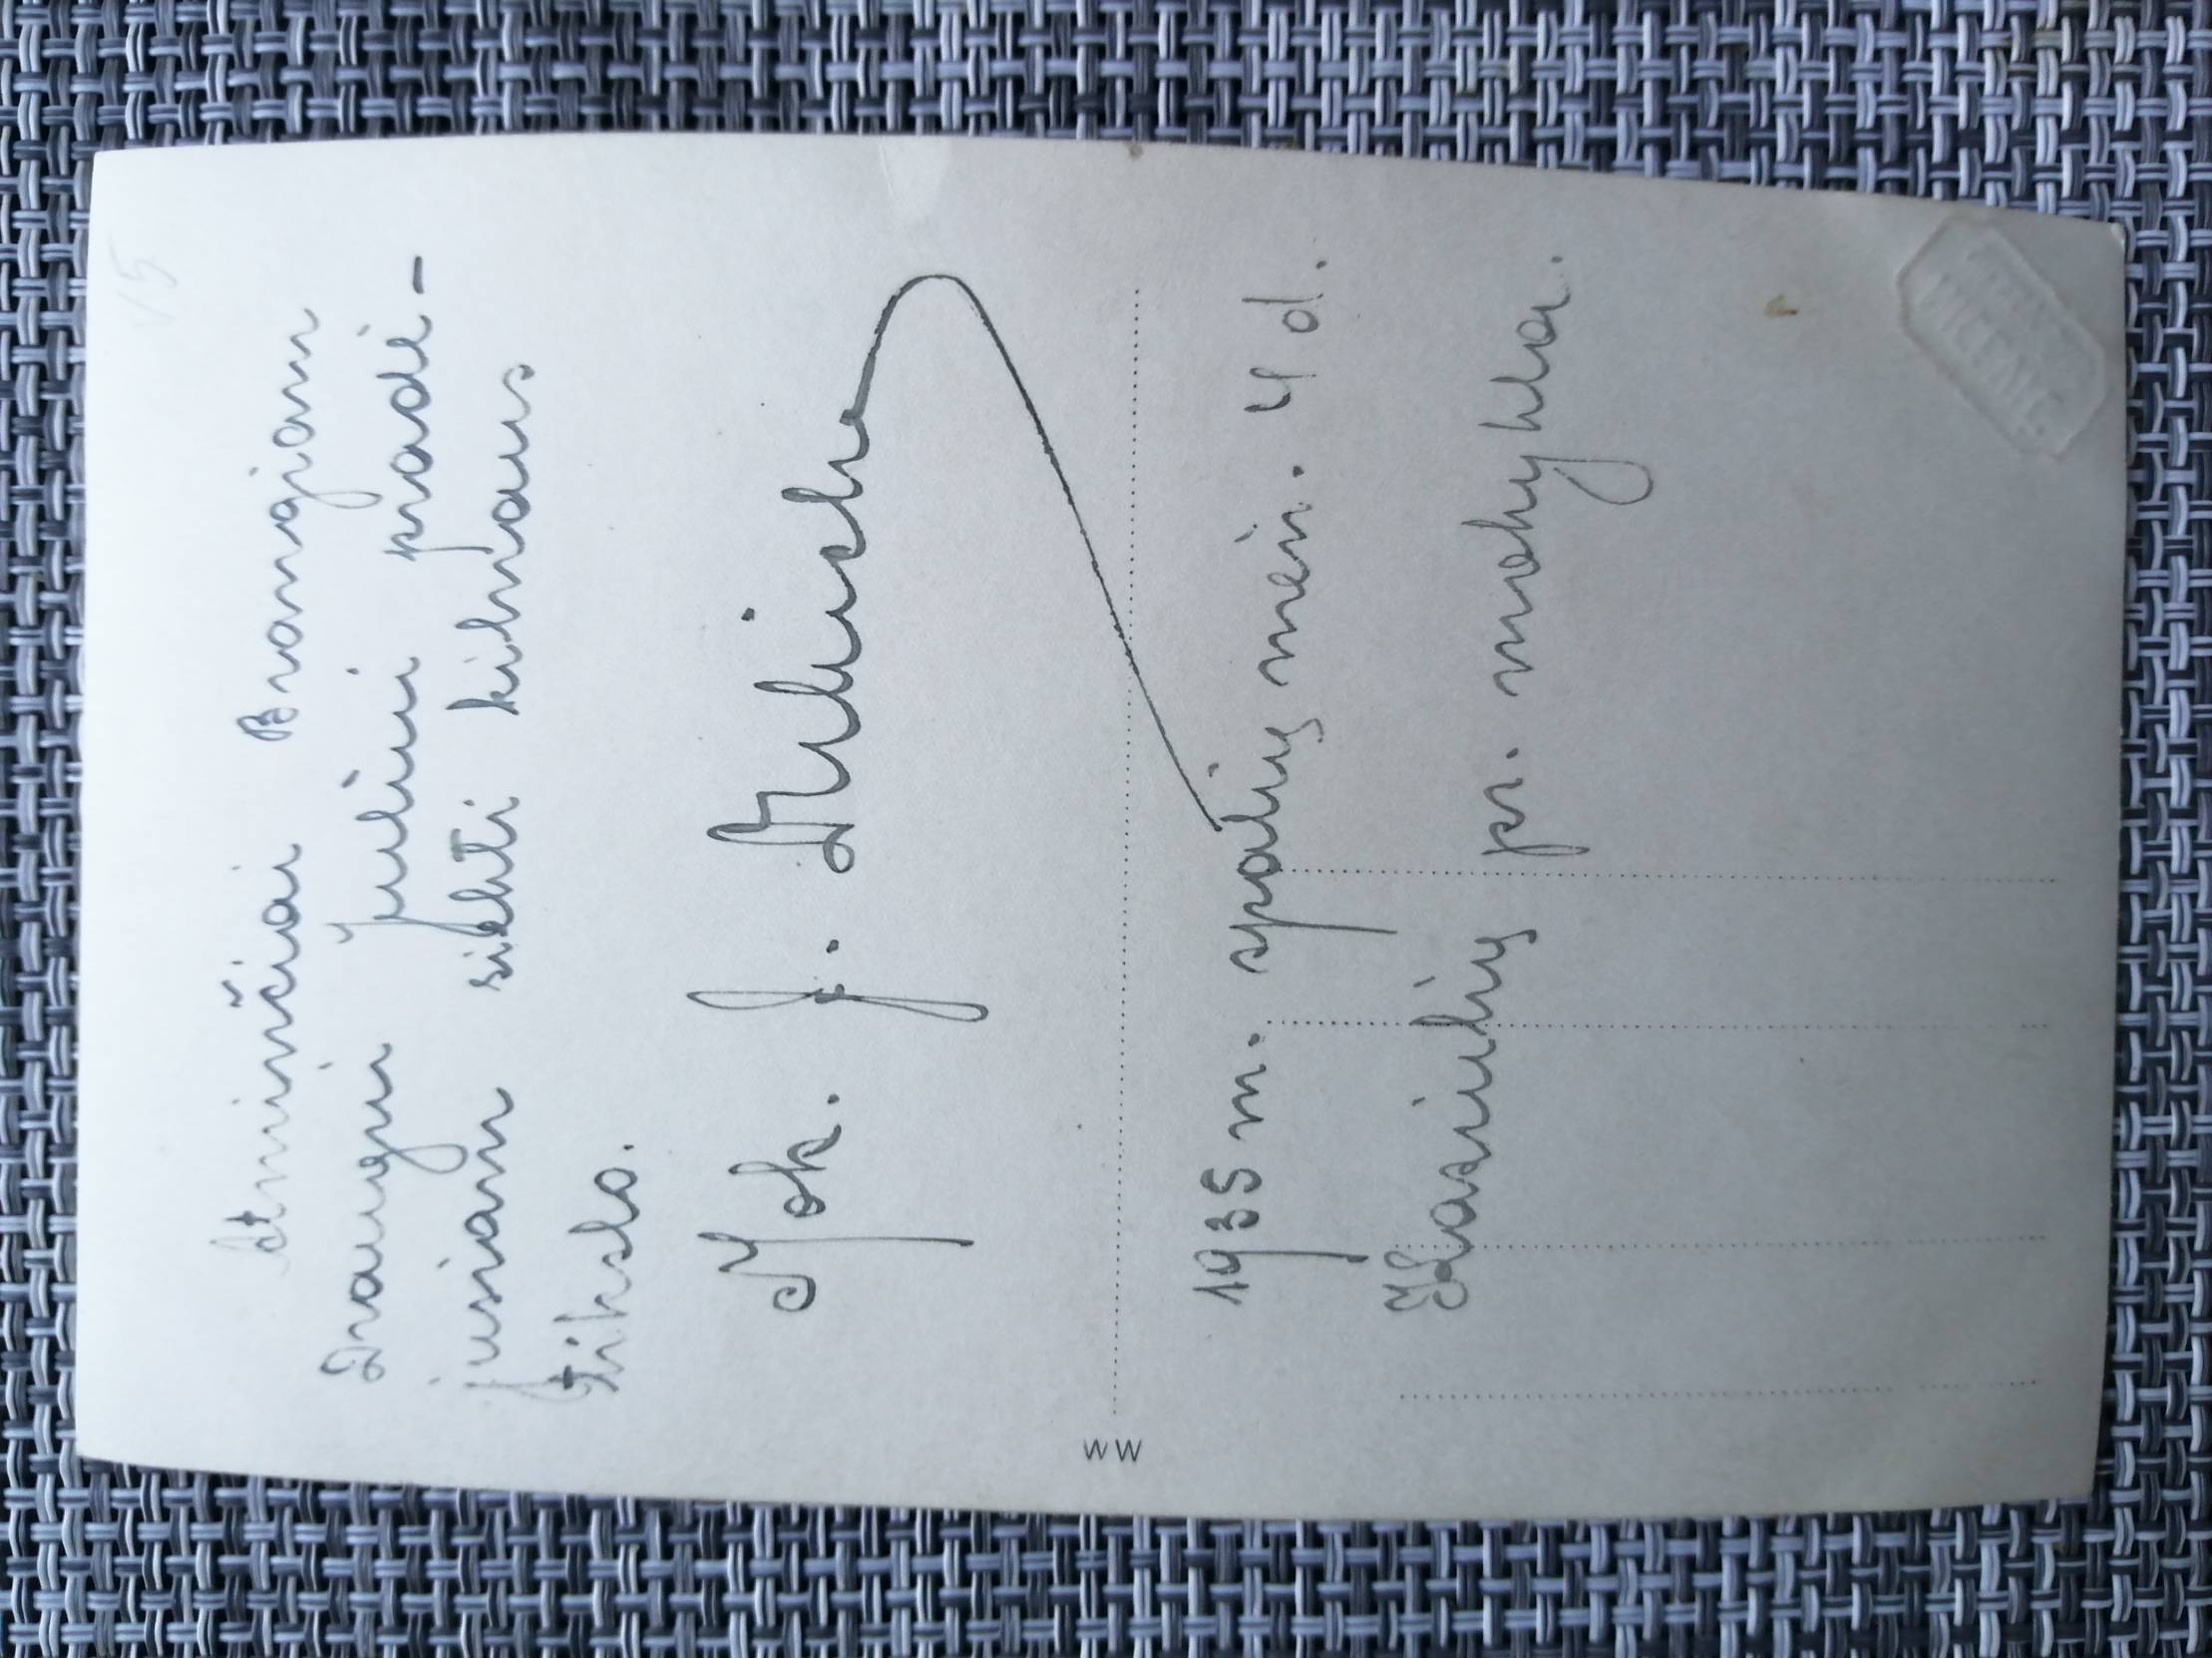 Atminčiai Brangiam
Draugui Juliui pradė-
jusiam siekti kilnaus
tikslo.
Mok. J.
1935 m. spalių mėn. 4 d.
pr. mokykla.
WW